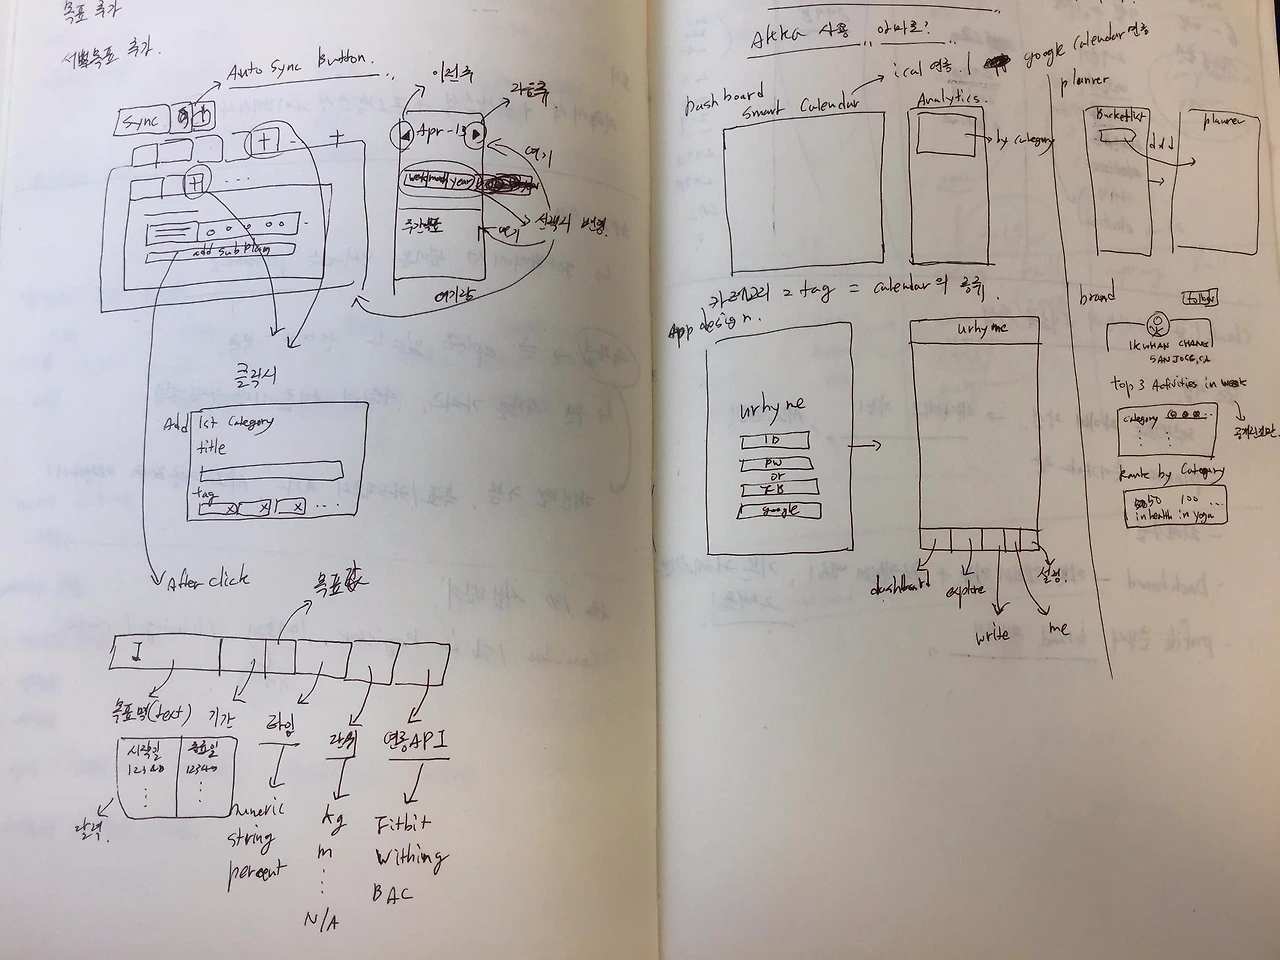 목표 추가
서브목표 추가.
Auto Sync Button.
Sync
add sub plan
이전주
다음주
Apr-13
week month year
여기
선택시 변경.
주간목표
여기
여기랑
클릭시
Add
1st Category
title
tag
x x x ...
After click
목표값
I
목표명(text)
기간
타입
단위
연동API
시작일
종료일
달력.
numeric
string
percent
kg
m
N/A
Fitbit
Withing
BAC
Akka 사용
ical 연동
google Calendar 연동
Dashboard
Smart Calendar
Analytics.
by category
planner
Bucketlist
planner
카테고리 = tag = calendar의 종류.
App design.
urhyme
ID
PW
or
FB
google
urhyme
dashboard
explore
write
me
설정.
brand
IKWHAN CHANG
SAN JOSE, CA
top 3 Activities in week
category
Rank by Category
50 100 ...
in health in yoga